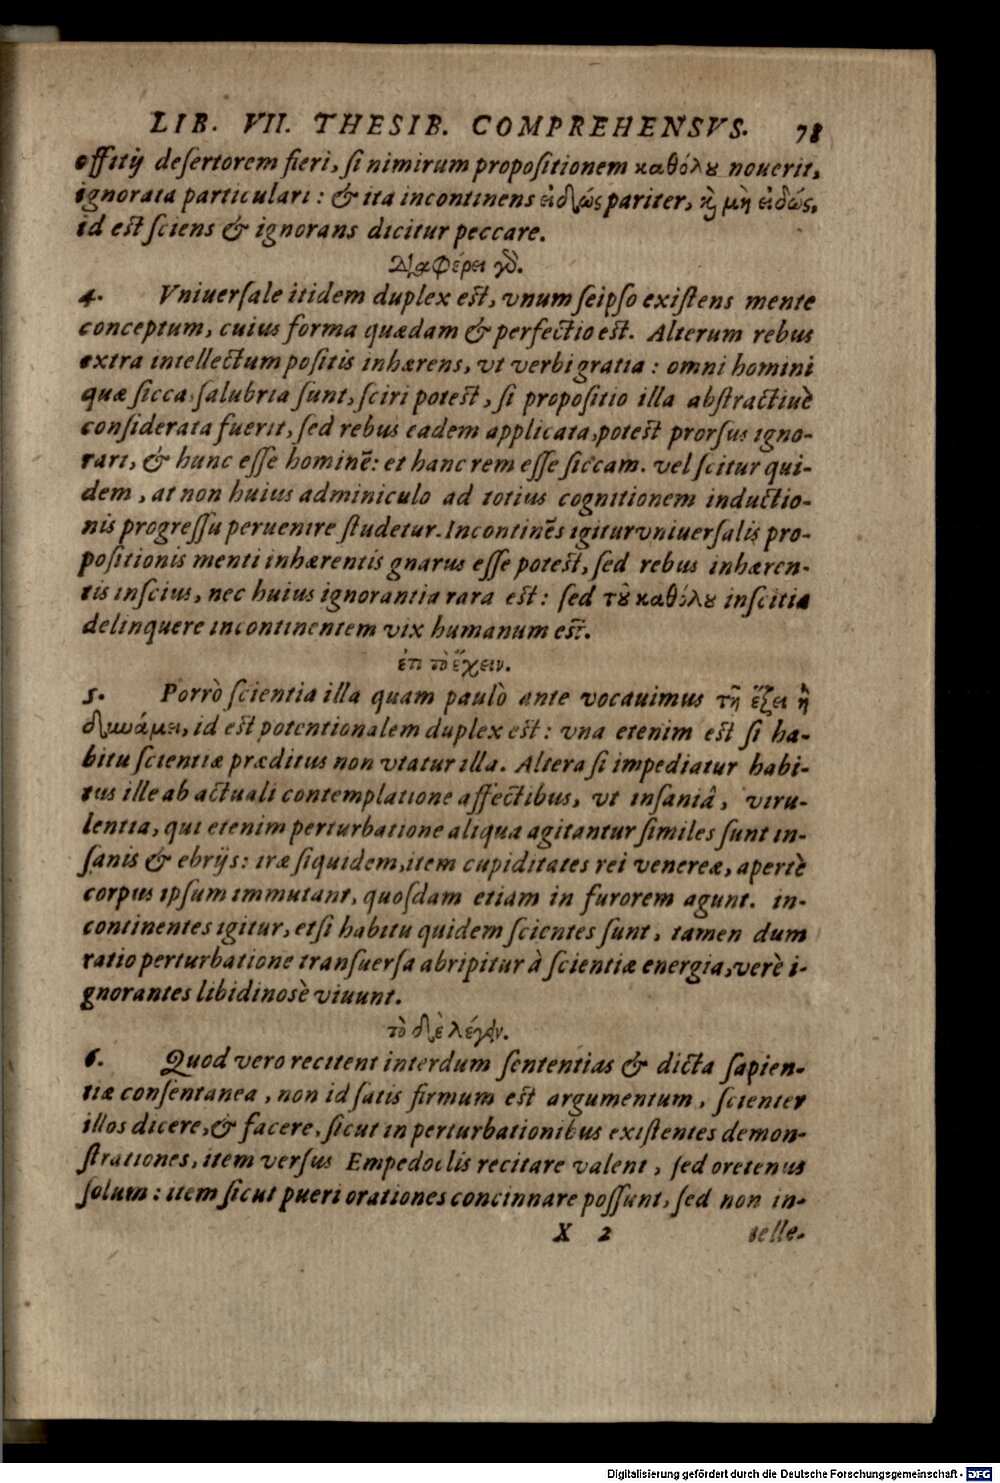 LIB. VII. THESIB. COMPREHENSVS. 78
offitij desertorem fieri, si nimirum propositionem καθόλȣ nouerit,
ignorata particulari: & ita incontinens εἰδώς pariter, κ̀ μὴ εἰδώς,
id est sciens & ignorans dicitur peccare.
Διαφέρει γδ.
4. Vniuersale itidem duplex est, vnum seipso existens mente
conceptum, cuius forma quædam & perfectio est. Alterum rebus
extra intellectum positis inhærens, vt verbi gratia: omni homini
quæ sicca, salubria sunt, sciri potest, si propositio illa abstractiuè
considerata fuerit, sed rebus eadem applicata, potest prorsus igno-
rari, & hunc esse hominẽ: et hanc rem esse siccam. vel scitur qui-
dem, at non huius adminiculo ad totius cognitionem inductio-
nis progressu peruenire studetur. Incontinẽs igitur vniuersalis pro-
positionis menti inhærentis gnarus esse potest, sed rebus inhæren-
tis inscius, nec huius ignorantia rara est: sed τȣ̃ καθόλȣ inscitia
delinquere incontinentem vix humanum est.
ἐπὶ τὸ ἔχειν.
5. Porrò scientia illa quam paulò ante vocauimus τῇ ἕξει ἢ
δυνάμει, id est potentionalem duplex est: vna etenim est si ha-
bitu scientiæ præditus non vtatur illa. Altera si impediatur habi-
tus ille ab actuali contemplatione affectibus, vt insaniâ, viru-
lentia, qui etenim perturbatione aliqua agitantur similes sunt in-
sanis & ebrijs: iræ siquidem, item cupiditates rei venereæ, apertè
corpus ipsum immutant, quosdam etiam in furorem agunt. in-
continentes igitur, etsi habitu quidem scientes sunt, tamen dum
ratio perturbatione transuersa abripitur à scientiæ energia, verè i-
gnorantes libidinosè viuunt.
τὸ δὲ λέγειν.
6. Quod vero recitent interdum sententias & dicta sapien-
tiæ consentanea, non id satis firmum est argumentum, scienter
illos dicere, & facere, sicut in perturbationibus existentes demon-
strationes, item versus Empedoclis recitare valent, sed oretenus
solum: item sicut pueri orationes concinnare possunt, sed non in-
X 2 telle-
Digitalisierung gefördert durch die Deutsche Forschungsgemeinschaft - DFG